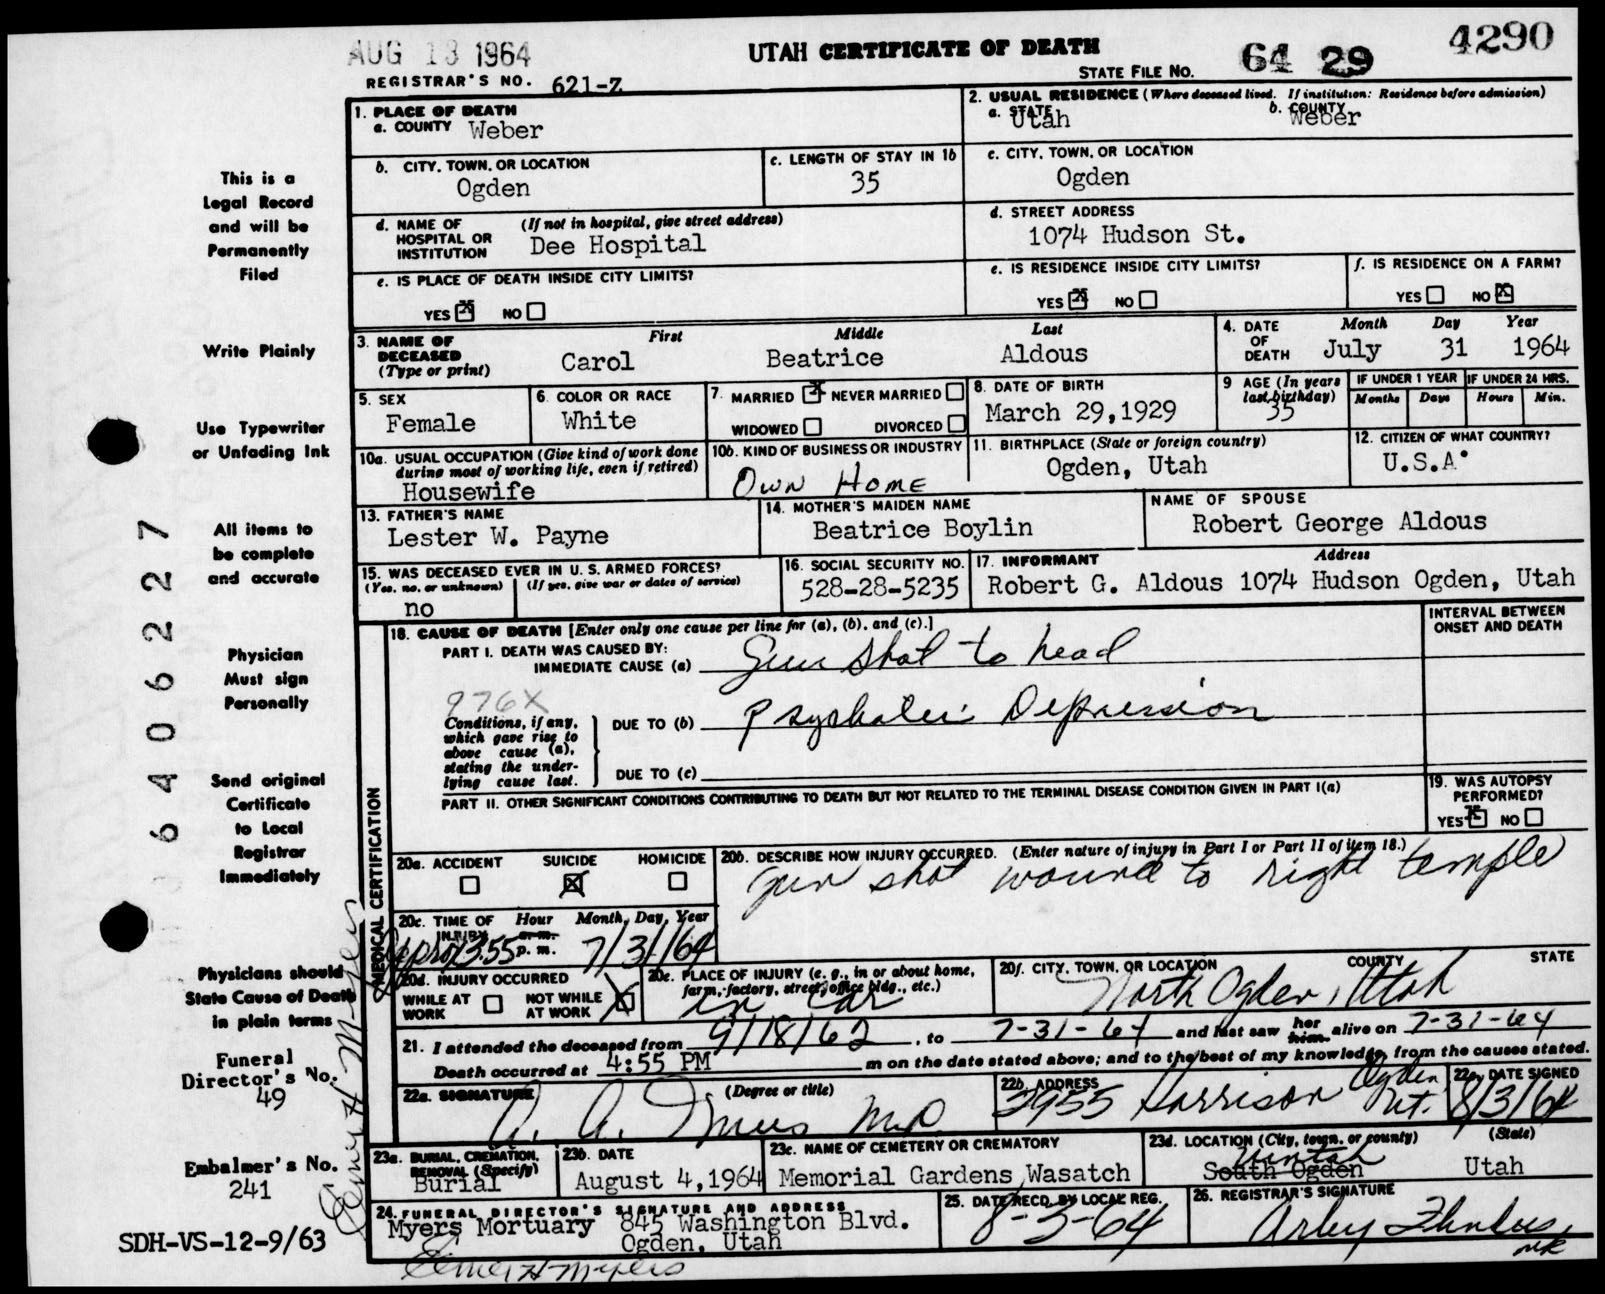 AUG 13 1964
UTAH CERTIFICATE OF DEATH
4290
REGISTRAR'S NO. 621-Z
STATE FILE NO. 64 29
This is a
Legal Record
and will be
Permanently
Filed
Write Plainly
Use Typewriter
or Unfading Ink
All items to
be complete
and accurate
Physician
Must sign
Personally
Send original
Certificate
to Local
Registrar
Immediately
Physicians should
State Cause of Death
in plain terms
Funeral
Director's No.
49
Embalmer's No.
241
SDH-VS-12-9/63
6406227
Elmer H Myers
1. PLACE OF DEATH
a. COUNTY Weber
2. USUAL RESIDENCE (Where deceased lived. If institution: Residence before admission)
a. STATE Utah
b. COUNTY Weber
b. CITY, TOWN, OR LOCATION
Ogden
c. LENGTH OF STAY IN 1b
35
c. CITY, TOWN, OR LOCATION
Ogden
d. NAME OF HOSPITAL OR INSTITUTION
(If not in hospital, give street address)
Dee Hospital
d. STREET ADDRESS
1074 Hudson St.
e. IS PLACE OF DEATH INSIDE CITY LIMITS?
YES X NO
e. IS RESIDENCE INSIDE CITY LIMITS?
YES X NO
f. IS RESIDENCE ON A FARM?
YES NO X
3. NAME OF DECEASED (Type or print)
First Middle Last
Carol Beatrice Aldous
4. DATE OF DEATH
Month Day Year
July 31 1964
5. SEX
Female
6. COLOR OR RACE
White
7. MARRIED X NEVER MARRIED
WIDOWED DIVORCED
8. DATE OF BIRTH
March 29,1929
9 AGE (In years last birthday)
35
IF UNDER 1 YEAR
Months Days
IF UNDER 24 HRS.
Hours Min.
10a. USUAL OCCUPATION (Give kind of work done during most of working life, even if retired)
Housewife
10b. KIND OF BUSINESS OR INDUSTRY
Own Home
11. BIRTHPLACE (State or foreign country)
Ogden, Utah
12. CITIZEN OF WHAT COUNTRY?
U.S.A.
13. FATHER'S NAME
Lester W. Payne
14. MOTHER'S MAIDEN NAME
Beatrice Boylin
NAME OF SPOUSE
Robert George Aldous
15. WAS DECEASED EVER IN U.S. ARMED FORCES?
(Yes, no, or unknown) (If yes, give war or dates of service)
no
16. SOCIAL SECURITY NO.
528-28-5235
17. INFORMANT Address
Robert G. Aldous 1074 Hudson Ogden, Utah
MEDICAL CERTIFICATION
18. CAUSE OF DEATH [Enter only one cause per line for (a), (b), and (c).]
INTERVAL BETWEEN ONSET AND DEATH
PART I. DEATH WAS CAUSED BY:
IMMEDIATE CAUSE (a) Gun shot to head
976X
Conditions, if any, which gave rise to above cause (a), stating the underlying cause last.
DUE TO (b) Psychotic Depression
DUE TO (c)
PART II. OTHER SIGNIFICANT CONDITIONS CONTRIBUTING TO DEATH BUT NOT RELATED TO THE TERMINAL DISEASE CONDITION GIVEN IN PART I(a)
19. WAS AUTOPSY PERFORMED?
YES X NO
20a. ACCIDENT SUICIDE X HOMICIDE
20b. DESCRIBE HOW INJURY OCCURRED. (Enter nature of injury in Part I or Part II of item 18.)
gun shot wound to right temple
20c. TIME OF INJURY Hour Month, Day, Year
a.m.
Approx 3:55 p.m. 7/31/64
20d. INJURY OCCURRED
WHILE AT WORK NOT WHILE AT WORK X
20e. PLACE OF INJURY (e. g., in or about home, farm, factory, street, office bldg., etc.)
in car
20f. CITY, TOWN, OR LOCATION COUNTY STATE
North Ogden, Utah
21. I attended the deceased from 9/18/62, to 7-31-64 and last saw her him alive on 7-31-64
Death occurred at 4:55 PM m on the date stated above; and to the best of my knowledge, from the causes stated.
22a. SIGNATURE (Degree or title)
M.D.
22b. ADDRESS
3955 Harrison Ogden Ut.
22c. DATE SIGNED
8/3/64
23a. BURIAL, CREMATION, REMOVAL (Specify)
Burial
23b. DATE
August 4,1964
23c. NAME OF CEMETERY OR CREMATORY
Memorial Gardens Wasatch
23d. LOCATION (City, town, or county) (State)
Uintah
South Ogden Utah
24. FUNERAL DIRECTOR'S SIGNATURE AND ADDRESS
Myers Mortuary 845 Washington Blvd.
Ogden, Utah
Elmer H Myers
25. DATE RECD. BY LOCAL REG.
8-3-64
26. REGISTRAR'S SIGNATURE